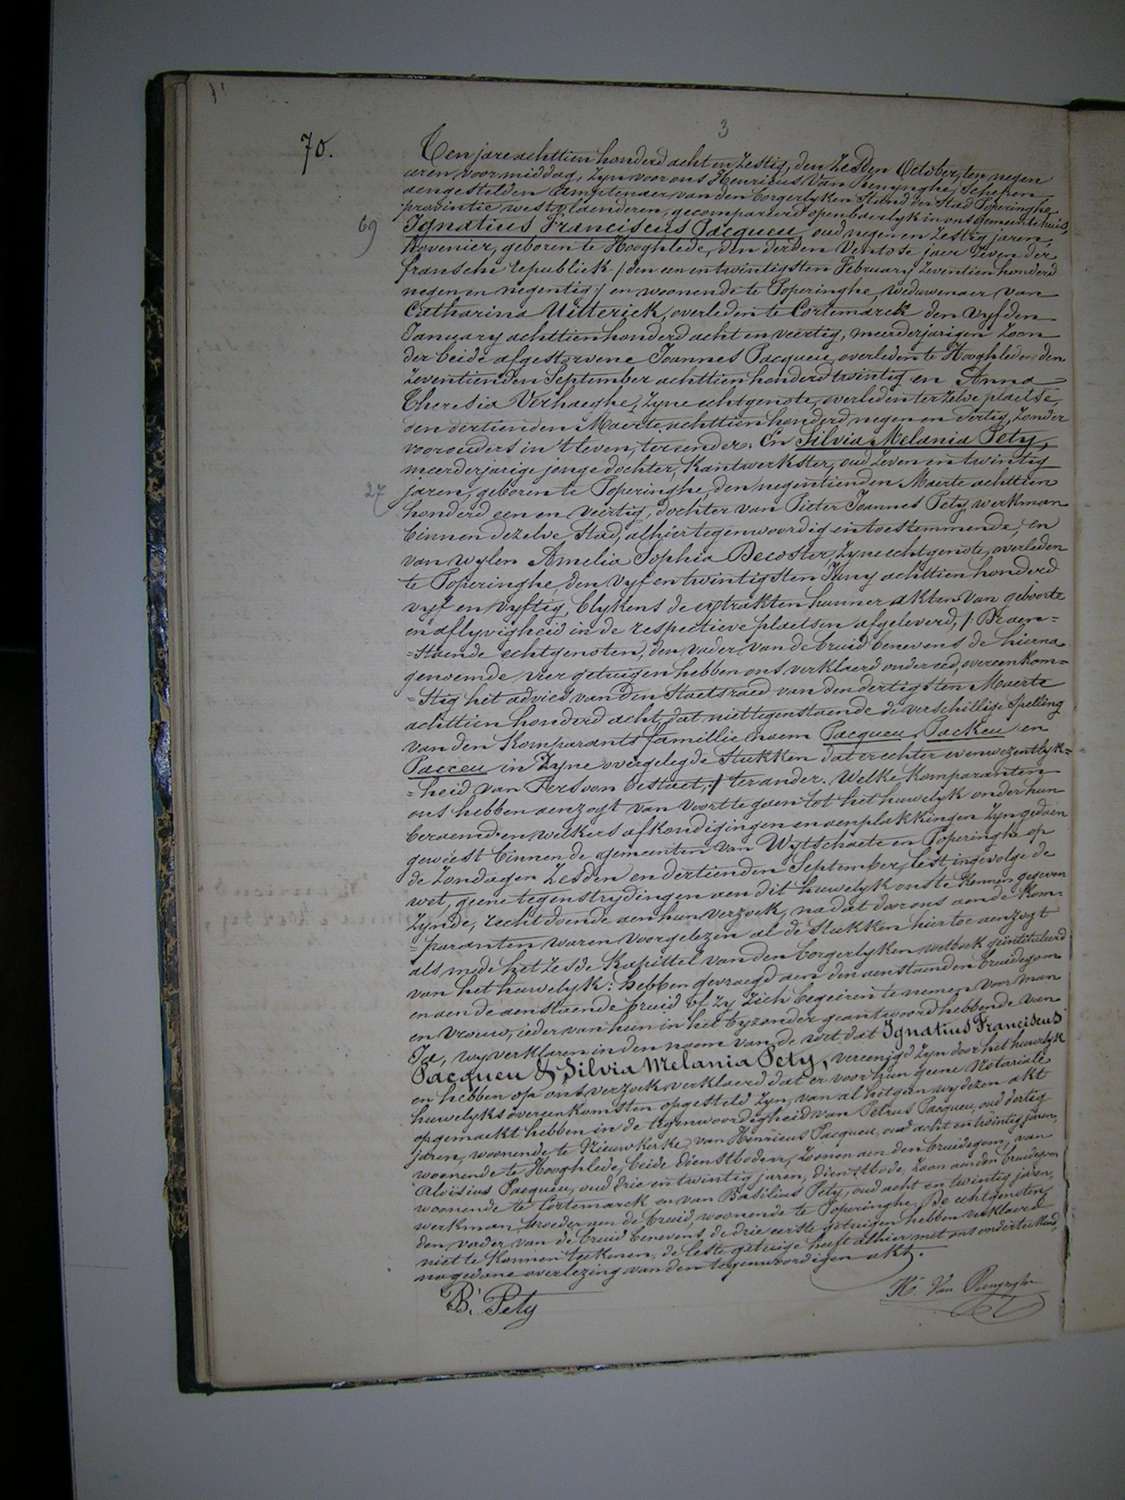 3
70.
Ten jare achttien honderd acht en zestig, den zesden October, ten negen
uren voormiddag, zyn voor ons Henricus Van Renynghe, Schepen
aengestelden amptenaer van den borgerlyken Stand der Stad Poperinghe
provintie westvlaenderen, gecompareerd openbaerlyk in ons gemeentehuis,
69
Ignatius Franciscus Pacqueu, oud negen en zestig jaren,
hovenier, geboren te Hooghlede, den derden Ventose jaer zeven der
fransche republiek / den een en twintigsten February zeventien honderd
negen en negentig / en woonende te Poperinghe, weduwenaer van
Catharina Uitterick, overleden te Cortemarck den vyfden
January achttien honderd acht en veertig, meerderjarigen zoon
der beide afgestorvene Joannes Pacqueu, overleden te Hooghlede, den
zeventienden September achttien honderd twintig en Anna
Theresia Verhaeghe, zyne echtgenote, overleden ter zelve plaetse,
den dertienden Maerte achttien honderd negen en dertig, zonder
voorouders in 't leven, ter eender. En Silvia Melania Pety,
meerderjarige jonge dochter, kantwerkster, oud zeven en twintig
27
jaren, geboren te Poperinghe, den negentienden Maerte achttien
honderd een en veertig, dochter van Pieter Joannes Pety, werkman
binnen dezelve Stad, alhier tegenwoordig en toestemmende, en
van wylen Amelia Sophia Decoster, zyne echtgenote, overleden
te Poperinghe, den vyf en twintigsten Juny achttien honderd
vyf en vyftig, blykens de extrakten hunner akten van geboorte
en aflyvigheid in de respectieve plaetsen afgeleverd, /: De aen=
=staende echtgenoten, den vader van de bruid benevens de hierna
genoemde vier getuigen hebben ons verklaerd onder eed, overeenkom=
=stig het advies van den Staetsraed van den dertigsten Maerte
achttien honderd acht, dat niettegenstaende de verschillige spelling
van den komparants famillie naem Pacqueu, Packeu en
Pacceu in zyne overgelegde Stukken dat er echter evenwezentlyk=
=heid van Persoon bestaet, :/ ter ander. Welke komparanten
ons hebben aenzogt van voort te gaen tot het huwelyk onder hun
beraemd en welkers afkondigingen en aenplakkingen zyn gedaen
geweest binnen de gemeenten van Wytschaete en Poperinghe op
de zondagen zesden en dertienden September lest, ingevolge de
wet, geene tegenstrydingen aen dit huwelyk ons te kennen gegeven
zynde, recht doende aen hun verzoek, na dat door ons aen de kom=
=paranten waren voorgelezen al de Stukken hiertoe aenzogt
als mede het zesde kapittel van den borgerlyken wetboek geintituleerd
van het huwelyk: hebben gevraegd aen den aenstaenden bruidegom
en aen de aenstaende bruid of zy zich begeiren te nemen voor man
en vrouw, ieder van hun in het byzonder geantwoord hebbende van
Ja, wy verklaren in den naem van de wet dat Ignatius Franciscus
Pacqueu & Silvia Melania Pety, vereenigd zyn door het huwelyk
en hebben op ons verzoek verklaerd dat er voor hun geene notariale
huwelyksovereenkomsten opgesteld zyn, van al het gene wy dezen akt
opgemaekt hebben in de tegenwoordigheid van Petrus Pacqueu, oud dertig
jaren, woonende te Nieuwkerke, van Henricus Pacqueu, oud acht en twintig jaren,
woonende te Hooghlede, beide dienstboden, zoonen aen den bruidegom, van
Aloisius Pacqueu, oud drie en twintig jaren, dienstbode, zoon aen den bruidegom
woonende te Cortemarck en van Basilius Pety, oud acht en twintig jaren,
werkman, broeder aen de bruid, woonende te Poperinghe. De echtgenoten,
den vader van de bruid benevens de drie eerste getuigen hebben verklaerd
niet te konnen teekenen, de leste getuige heeft alhier met ons onderteekend,
na gedane overlezing van den tegenwoordigen akt.
B. Pety
H. Van Renynghe